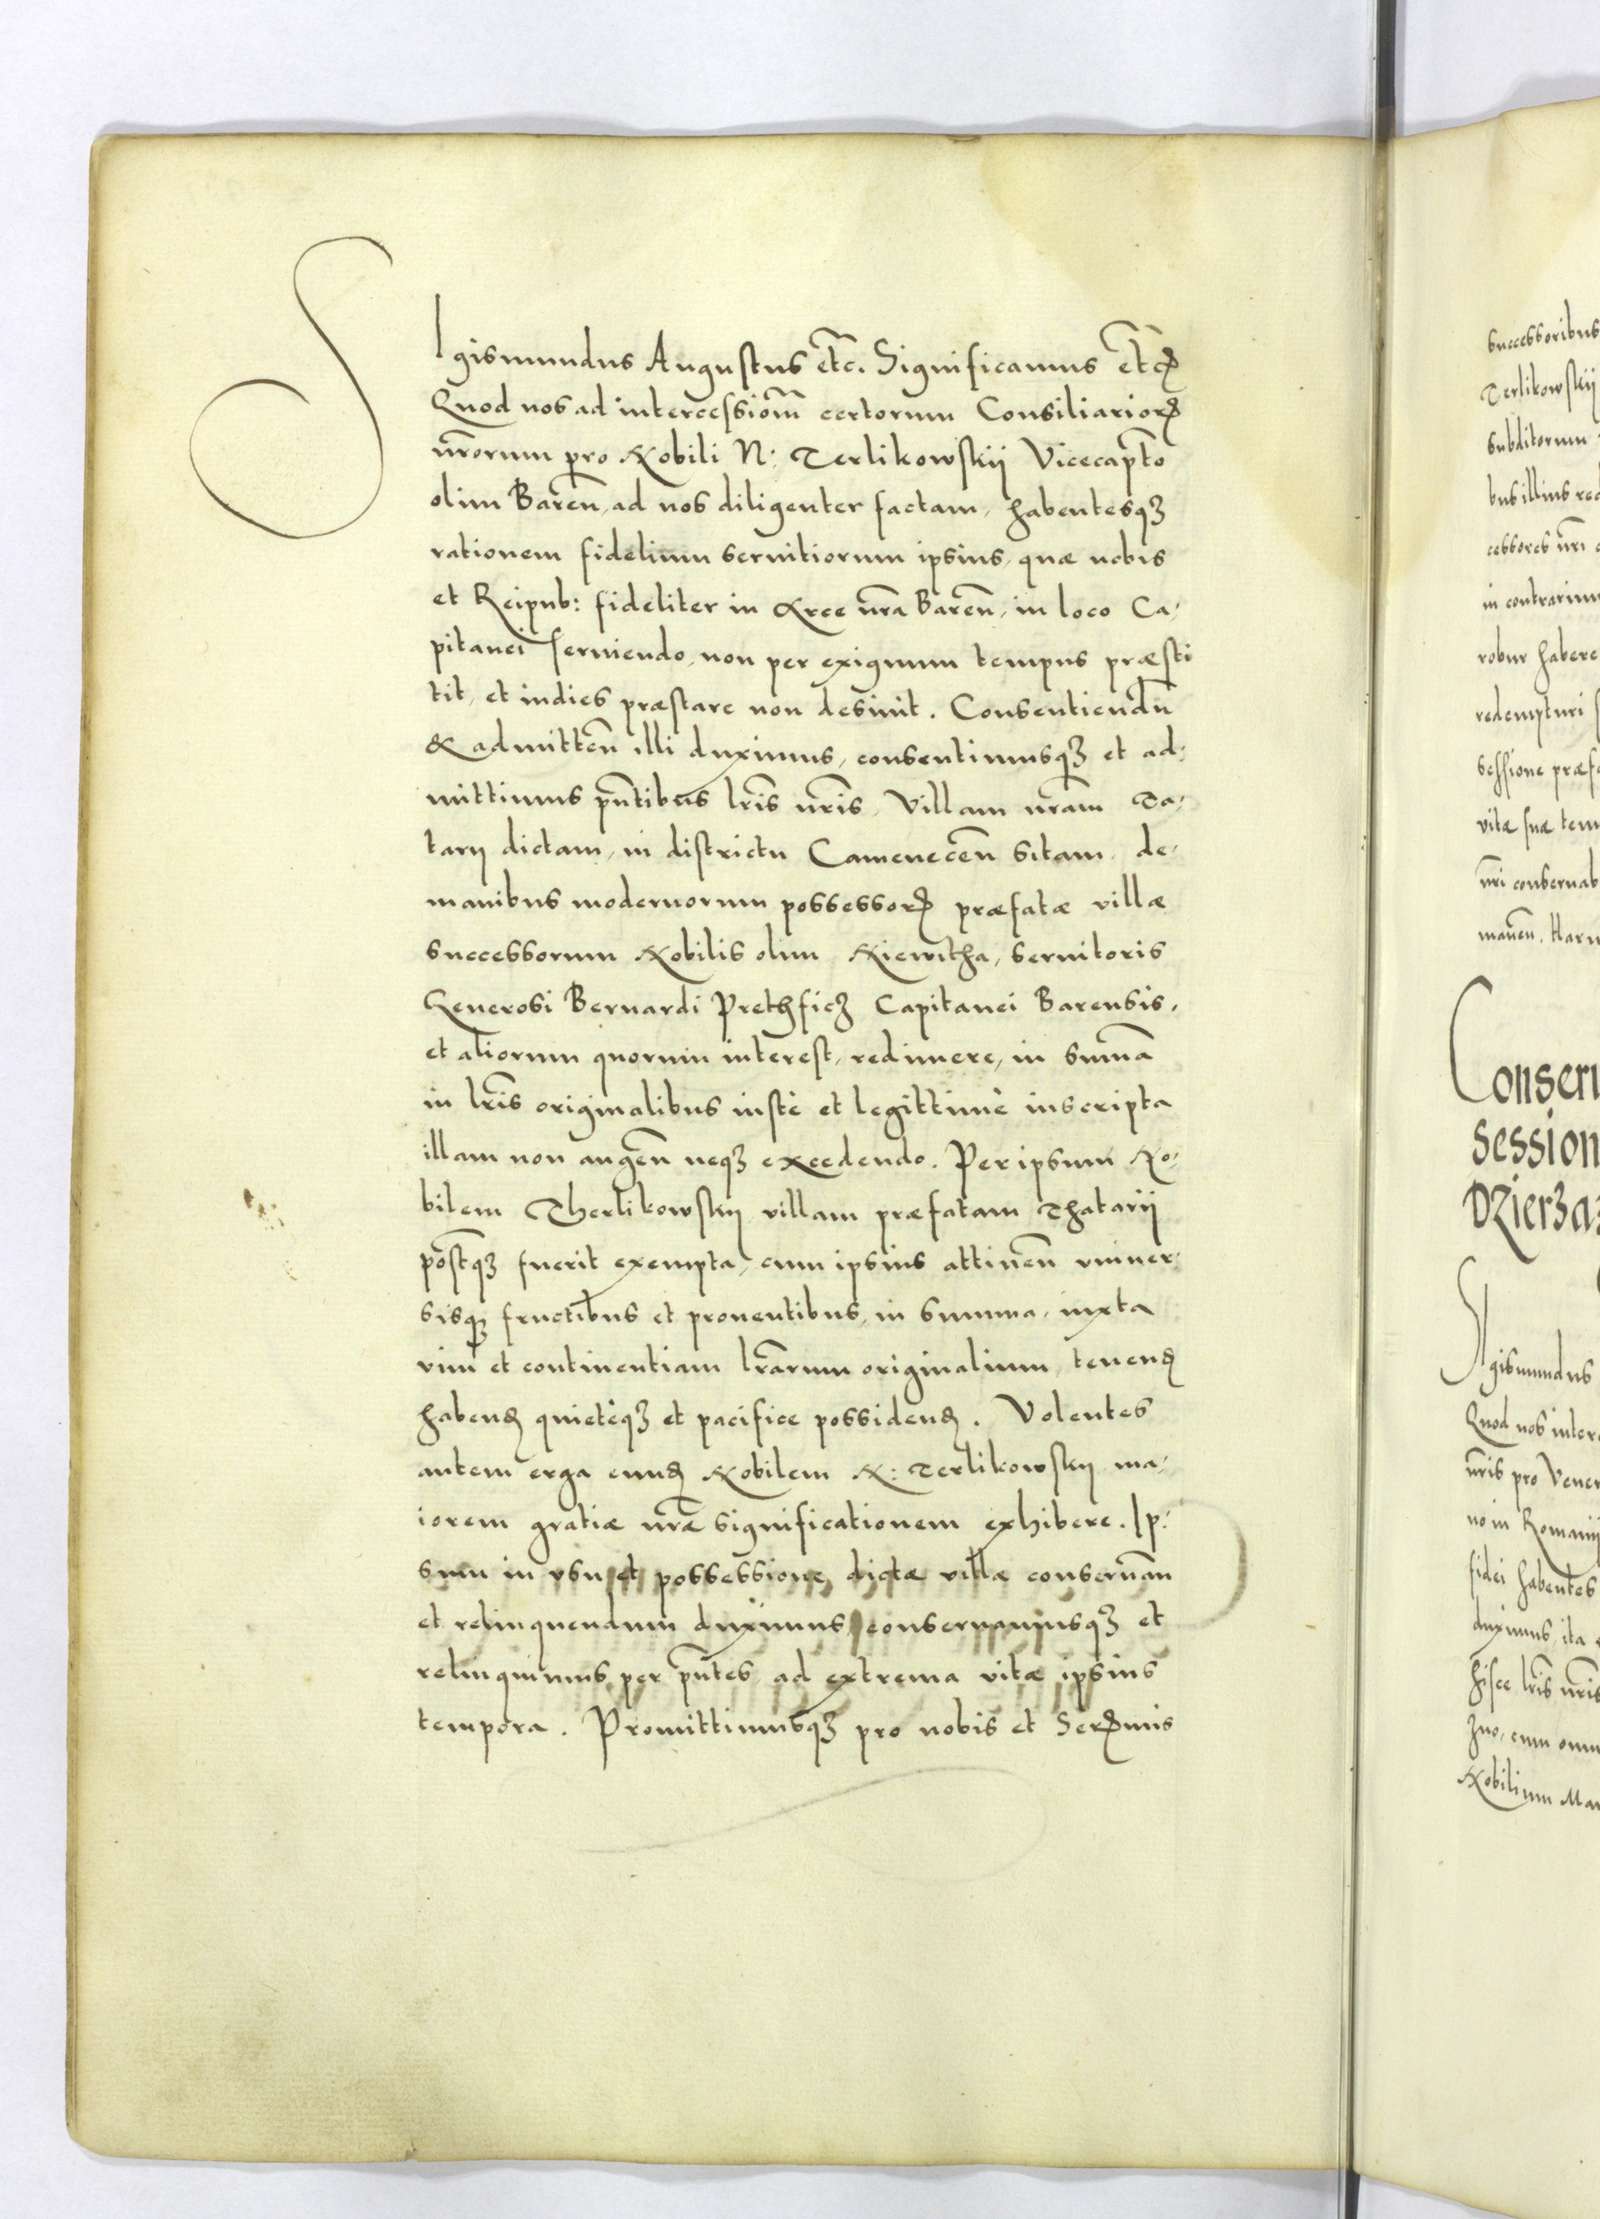 SIgismundus Augustus etc. Significamus etc̃
Quod nos ad intercessiom̃ certorum Consiliarioꝝ
nr̃orum pro Nobili N: Terlikowskij Vicecapt̃o
olim Bareñ, ad nos diligenter factam, habentesqꝫ
rationem fidelium seruitiorum ipsius, quæ nobis
et Reipub: fideliter in Arce nr̃a Bareñ, in loco Ca-
pitanei seruiendo, non per exiguum tempus præsti
tit, et indies præstare non desinit. Consentiendũ
& admitteñ illi duximus, consentimusqꝫ et ad-
mittimus pñtibus lr̃is nr̃is, Villam nr̃am Ta-
tarij dictam, in districtu Cameneceñ sitam, de
manibus modernorum possessoꝝ præfatæ villæ
successorum Nobilis olim Kiewitha, seruitoris
Generosi Bernardi Prethficz Capitanei Barensis,
et aliorum quorum interest, redimere, in sum̃a
in lr̃is originalibus iustè et legittimè inscripta
illam non augeñ neqꝫ excedendo. Per ipsum No-
bilem Therlikowskij villam præfatam Thatarij
post̃qꝫ fuerit exempta, cum ipsius attineñ vniuer-
sisqꝫ fructibus et prouentibus, in summa, iuxta
vim et continentiam lr̃arum originalium, tenenꝺ
habenꝺ quietèqꝫ et pacifice possidenꝺ. Volentes
autem erga eunꝺ Nobilem N: Terlikowskij ma-
iorem gratiæ nr̃æ significationem exhibere. Ip-
sum in vsu et possessione dictæ villæ conseruañ
et relinquendum duximus, conseruamusqꝫ et
relinquimus per pñtes ad extrema vitæ ipsius
tempora. Promittimusqꝫ pro nobis et Serꝺmis
successoribus
Terlikowskij
subditorum
bus illius red
cessores nr̃i
in contrarium
robur habere
redempturi
sessione præfa
vitæ suæ tem
nr̃i conseruab
maneñ. Haru
Conseru
session
Dzierza
SIgismundus
Quod nos inter
nr̃is pro Vener
no in Romanij
fidei habentes
duximus, ita
hisce lr̃is nr̃is
zno, cum omn
Nobilium Mar